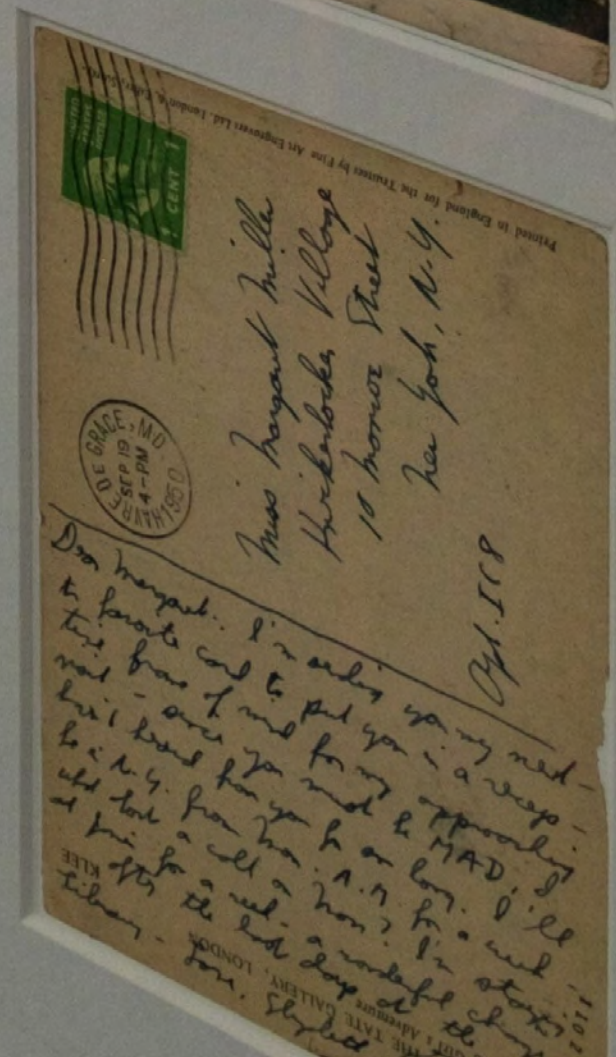 Printed in England for the Trustees by Fine Art Engravers Ltd. London &
UNITED STATES POSTAGE
1 CENT 1
HAVRE DE GRACE, MD.
SEP 19
4-PM
1950
Miss Margaret Miller
Knickerbocker Village
10 Monroe Street
New York, N.Y.
Apt. IC8
Dear Margaret: I'm sending you my next-
to favorite card to put you in a recep-
tive frame of mind for my approaching
visit - since you must be MAD, I
haven't heard from you for so long. I'll
be in N.Y. from Mon. A.M. for a week -
a call on Mon? I'm staying
at for a week - a wonderful change
after the last days at the
Library - Love, Elizabeth
KLEE
Adventure
THE TATE GALLERY, LONDON